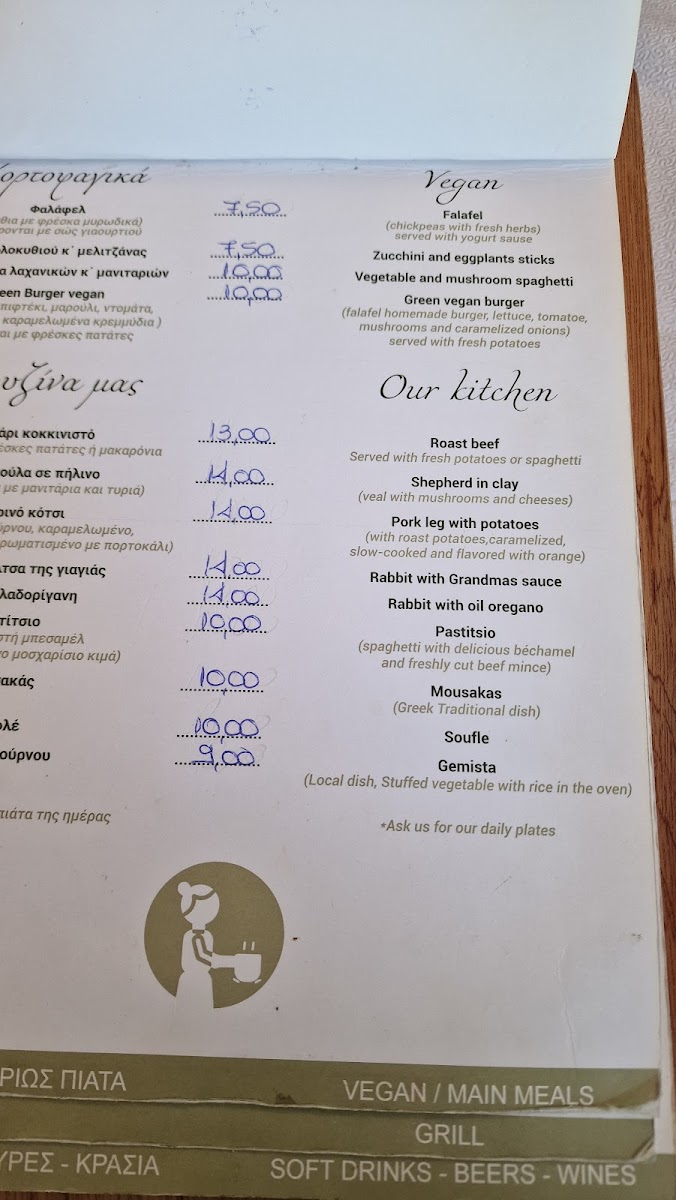 ορτοφαγικά Vegan
Φαλάφελ 7,50 Falafel
θια με φρέσκα μυρωδικά) (chickpeas with fresh herbs)
ρονται με σως γιαουρτιού served with yogurt sause
λοκυθιού κ΄ μελιτζάνας 7,50 Zucchini and eggplants sticks
α λαχανικών κ΄ μανιταριών 10,00 Vegetable and mushroom spaghetti
een Burger vegan 10,00 Green vegan burger
πιφτέκι, μαρούλι, ντομάτα, (falafel homemade burger, lettuce, tomatoe,
καραμελωμένα κρεμμύδια ) mushrooms and caramelized onions)
αι με φρέσκες πατάτες served with fresh potatoes
υζίνα μας Our kitchen
άρι κοκκινιστό 13,00 Roast beef
έσκες πατάτες ή μακαρόνια Served with fresh potatoes or spaghetti
ούλα σε πήλινο 14,00 Shepherd in clay
με μανιτάρια και τυριά) (veal with mushrooms and cheeses)
ρινό κότσι 14,00 Pork leg with potatoes
ύρνου, καραμελωμένο, (with roast potatoes,caramelized,
ρωματισμένο με πορτοκάλι) slow-cooked and flavored with orange)
τσα της γιαγιάς 14,00 Rabbit with Grandmas sauce
λαδορίγανη 14,00 Rabbit with oil oregano
τίτσιο 10,00 Pastitsio
στή μπεσαμέλ (spaghetti with delicious béchamel
ο μοσχαρίσιο κιμά) and freshly cut beef mince)
ακάς 10,00 Mousakas
(Greek Traditional dish)
λέ 10,00 Soufle
ούρνου 9,00 Gemista
(Local dish, Stuffed vegetable with rice in the oven)
πιάτα της ημέρας *Ask us for our daily plates
ΡΙΩΣ ΠΙΑΤΑ VEGAN / MAIN MEALS
GRILL
ΥΡΕΣ - ΚΡΑΣΙΑ SOFT DRINKS - BEERS - WINES